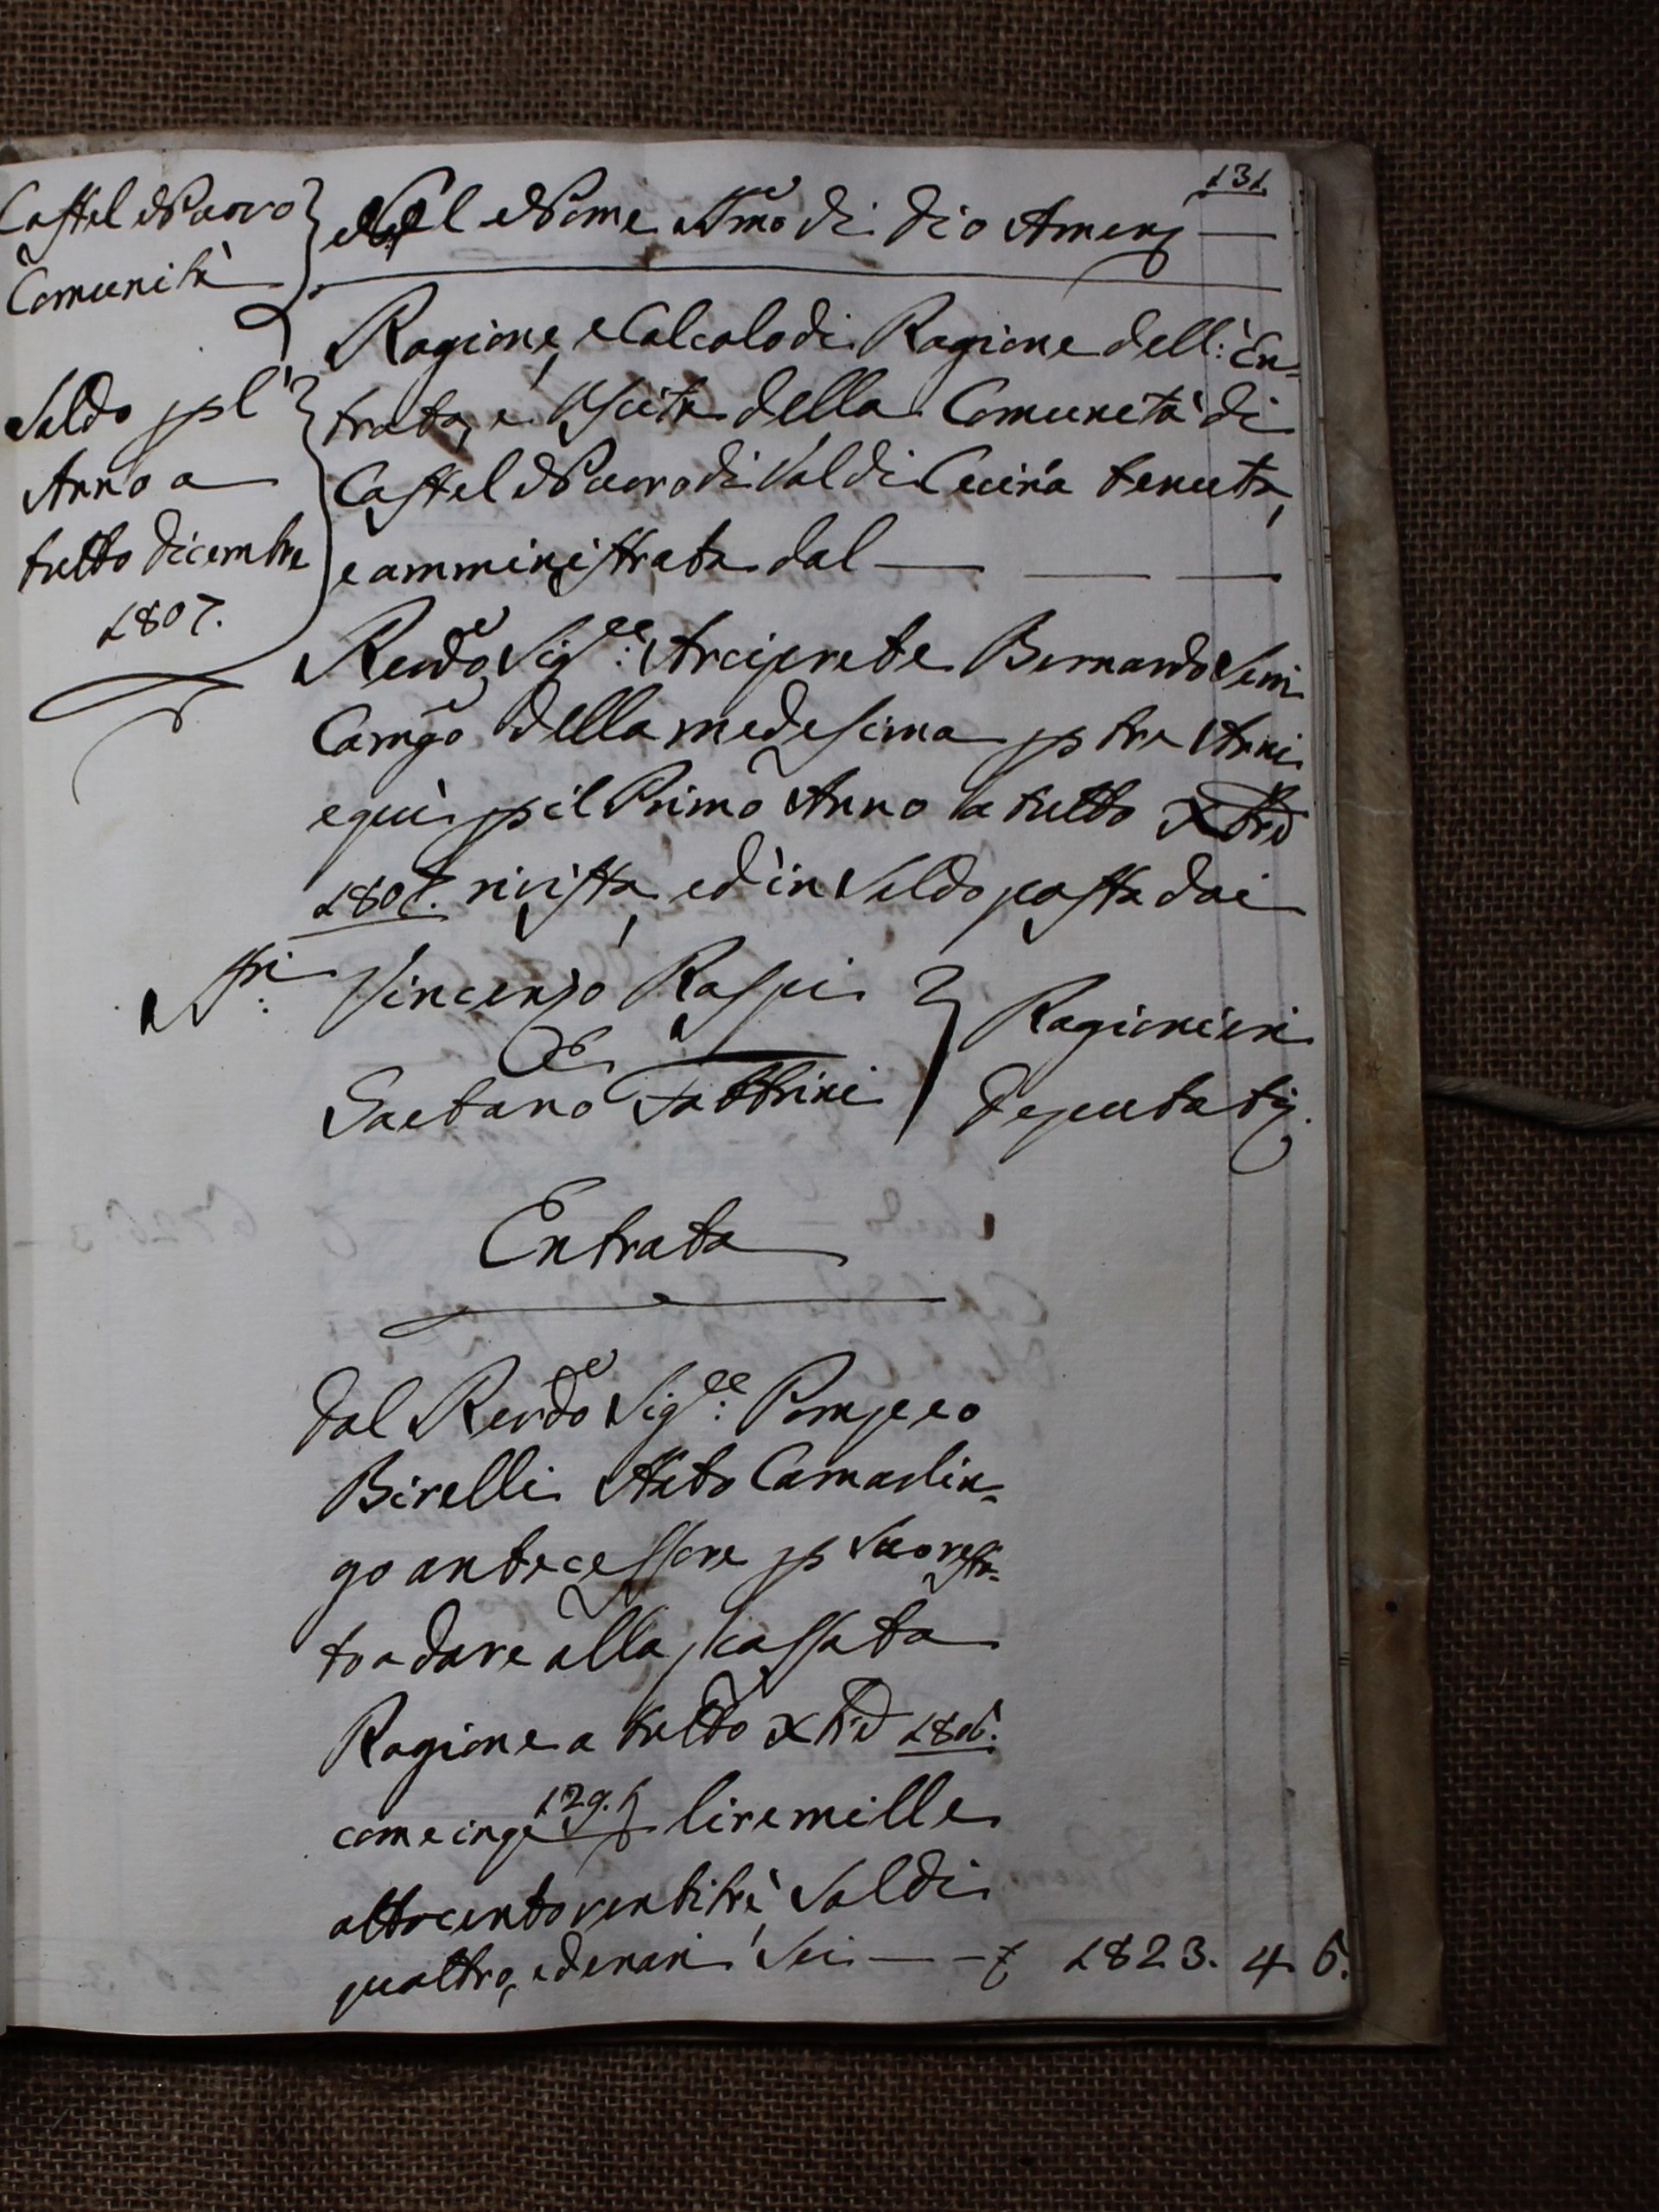 131.
Castel Nuovo
Comunità
Saldo p l'
Anno a
tutto Dicembre
1807.
Nel Nome SSmo di Dio Amen
Ragione, e Calcolo di Ragione dell: En-
trata, e Uscita della Comunità di
Castel Nuovo di Val di Cecina tenuta,
e amministrata dal
Revdo Sigre: Arciprete Bernardo Serri
Camgo della medesima p tre Anni
e qui p il Primo Anno a tutto Xbre
1807. rivista, ed in Saldo posta dai
SSri: Vincenzo Raspi
&
Gaetano Fabbrini
Ragionieri
Deputatj.
Entrata
Dal Revdo Sigre: Pompeo
Birelli Stato Camarlin-
go antecessore p Suo resta-
to a dare alla passata
Ragione a tutto Xbre 1806.
come in ga 129. lire mille
ottocentoventitrè Soldi
quattro, e denari Sei — £ 1823. 4. 6.